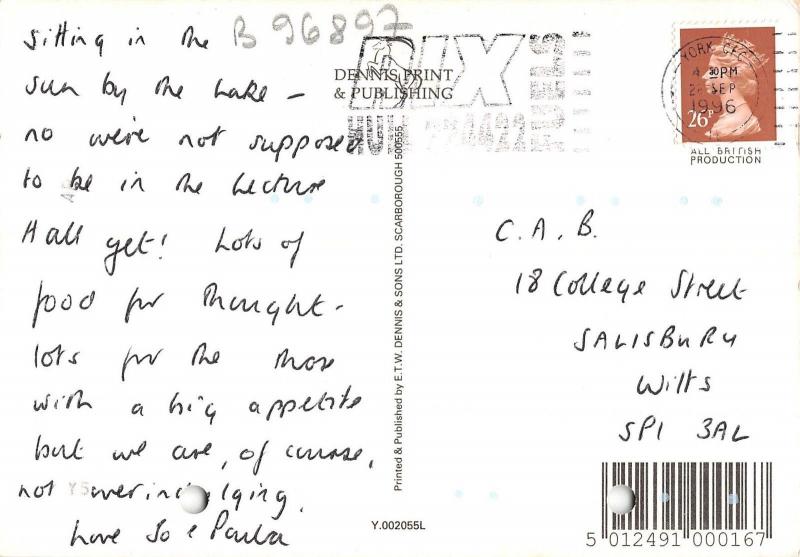 B 96897
sitting in the
sun by the lake –
no we're not supposed
to be in the lecture
Hall yet! Lots of
food for thought –
lots for the those
with a big appetite
but we are, of course,
not overindulging.
Love Jo & Paula
DENNIS PRINT
& PUBLISHING
DIX
YORK
30PM
SEP
1996
26P
ALL BRITISH
PRODUCTION
C. A. B.
18 College Street
SALISBURY
Wilts
SP1 3AL
Printed & Published by E.T.W. DENNIS & SONS LTD. SCARBOROUGH 500555
Y.002055L
5 012491 000167